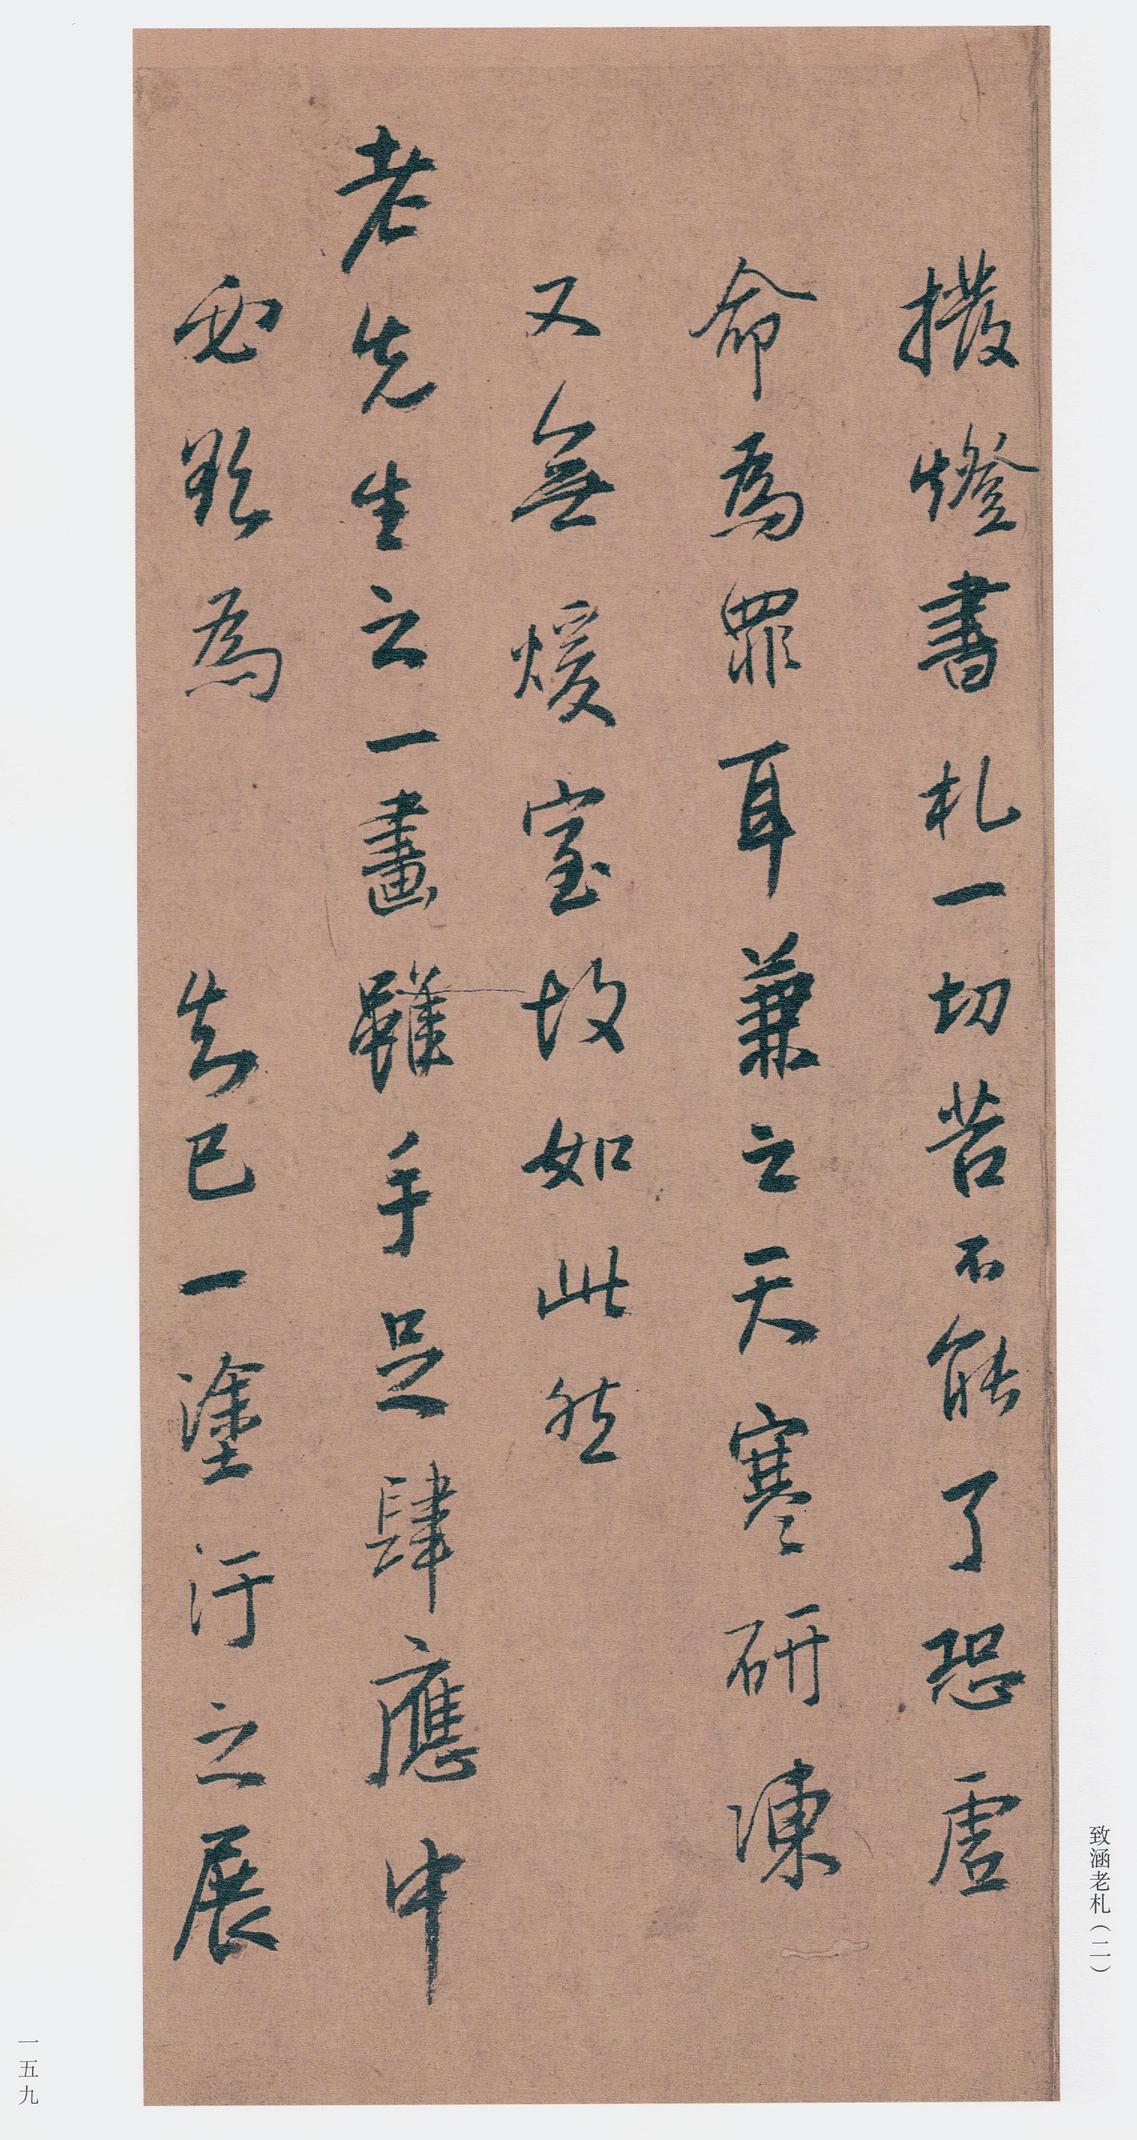 致涵老札（二）
撥燈書札一切苦不能了恐虛
命為罪耳兼之天寒研凍
又無煖室故如此然
老先生之一畫雖手足肆應中
必欲為 知己一塗汙之展
一五九